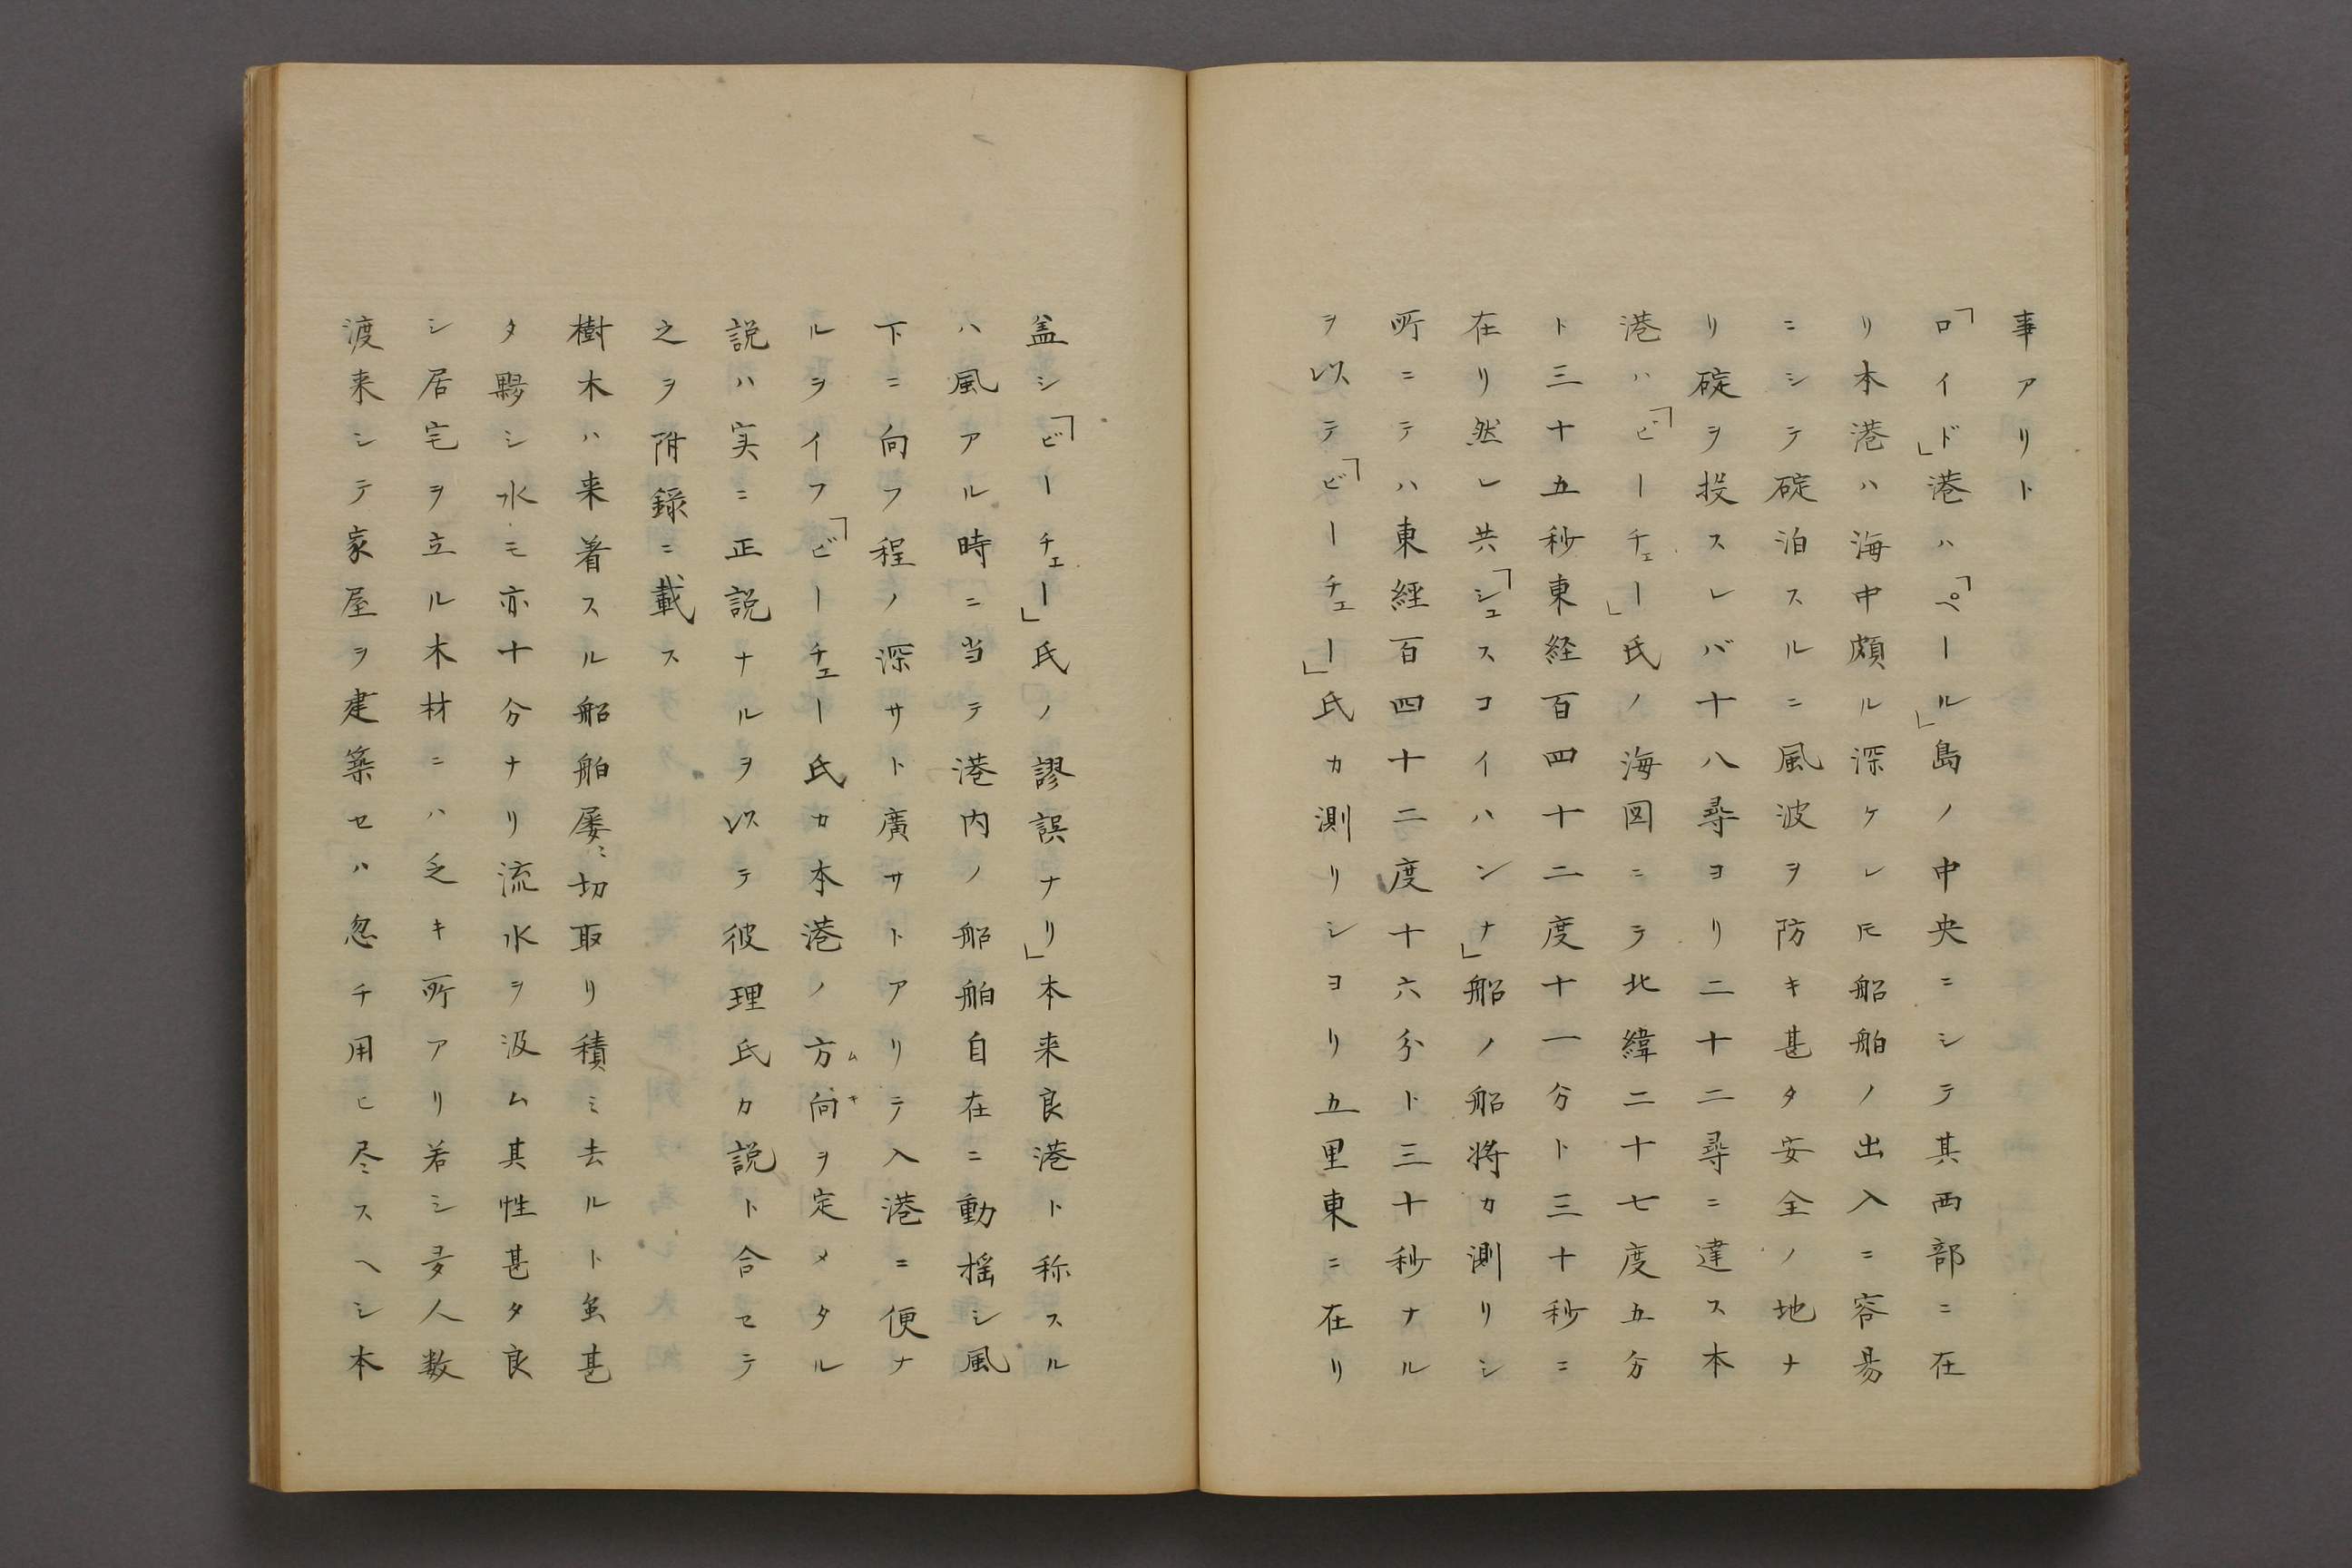 事アリト
「ロイド」港ハ「ペール」島ノ中央ニシテ其西部ニ在
リ本港ハ海中頗ル深ケレ𪜈船舶ノ出入ニ容昜
ニシテ碇泊スルニ風波ヲ防キ甚タ安全ノ地ナ
リ碇ヲ投スレバ十八尋ヨリ二十二尋ニ達ス本
港ハ「ビーチェー」氏ノ海図ニテ北緯二十七度五分
ト三十五秒東経百四十二度十一分ト三十秒ニ
在リ然レ共「シュスコイハンナ」船ノ船将カ測リシ
所ニテハ東經百四十二度十六分ト三十秒ナル
ヲ以テ「ビーチェー」氏カ測リシヨリ五里東ニ在リ
盖シ「ビーチェー」氏ノ謬誤ナリ」本来良港ト称スル
ハ風アル時ニ当テ港内ノ船舶自在ニ動揺シ風
下ニ向フ程ノ深サト廣サトアリテ入港ニ便ナ
ルヲイフ「ビーチェー氏カ本港ノ方向ムキヲ定メタル
説ハ実ニ正説ナルヲ以テ彼理氏カ説ト合セテ
之ヲ附録ニ載ス
樹木ハ来着スル船舶屡〻切取リ積ミ去ルト虽甚
タ夥シ水モ亦十分ナリ流水ヲ汲ム其性甚タ良
シ居宅ヲ立ル木材ニハ乏キ所アリ若シ夛人数
渡来シテ家屋ヲ建築セハ忽チ用ヒ尽スヘシ本